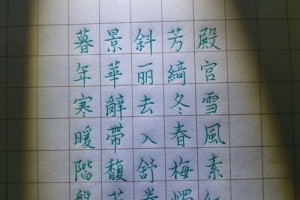 暮景斜芳殿
年華丽綺宮
寒辭去冬雪
暖帶入春風
階馥舒梅素